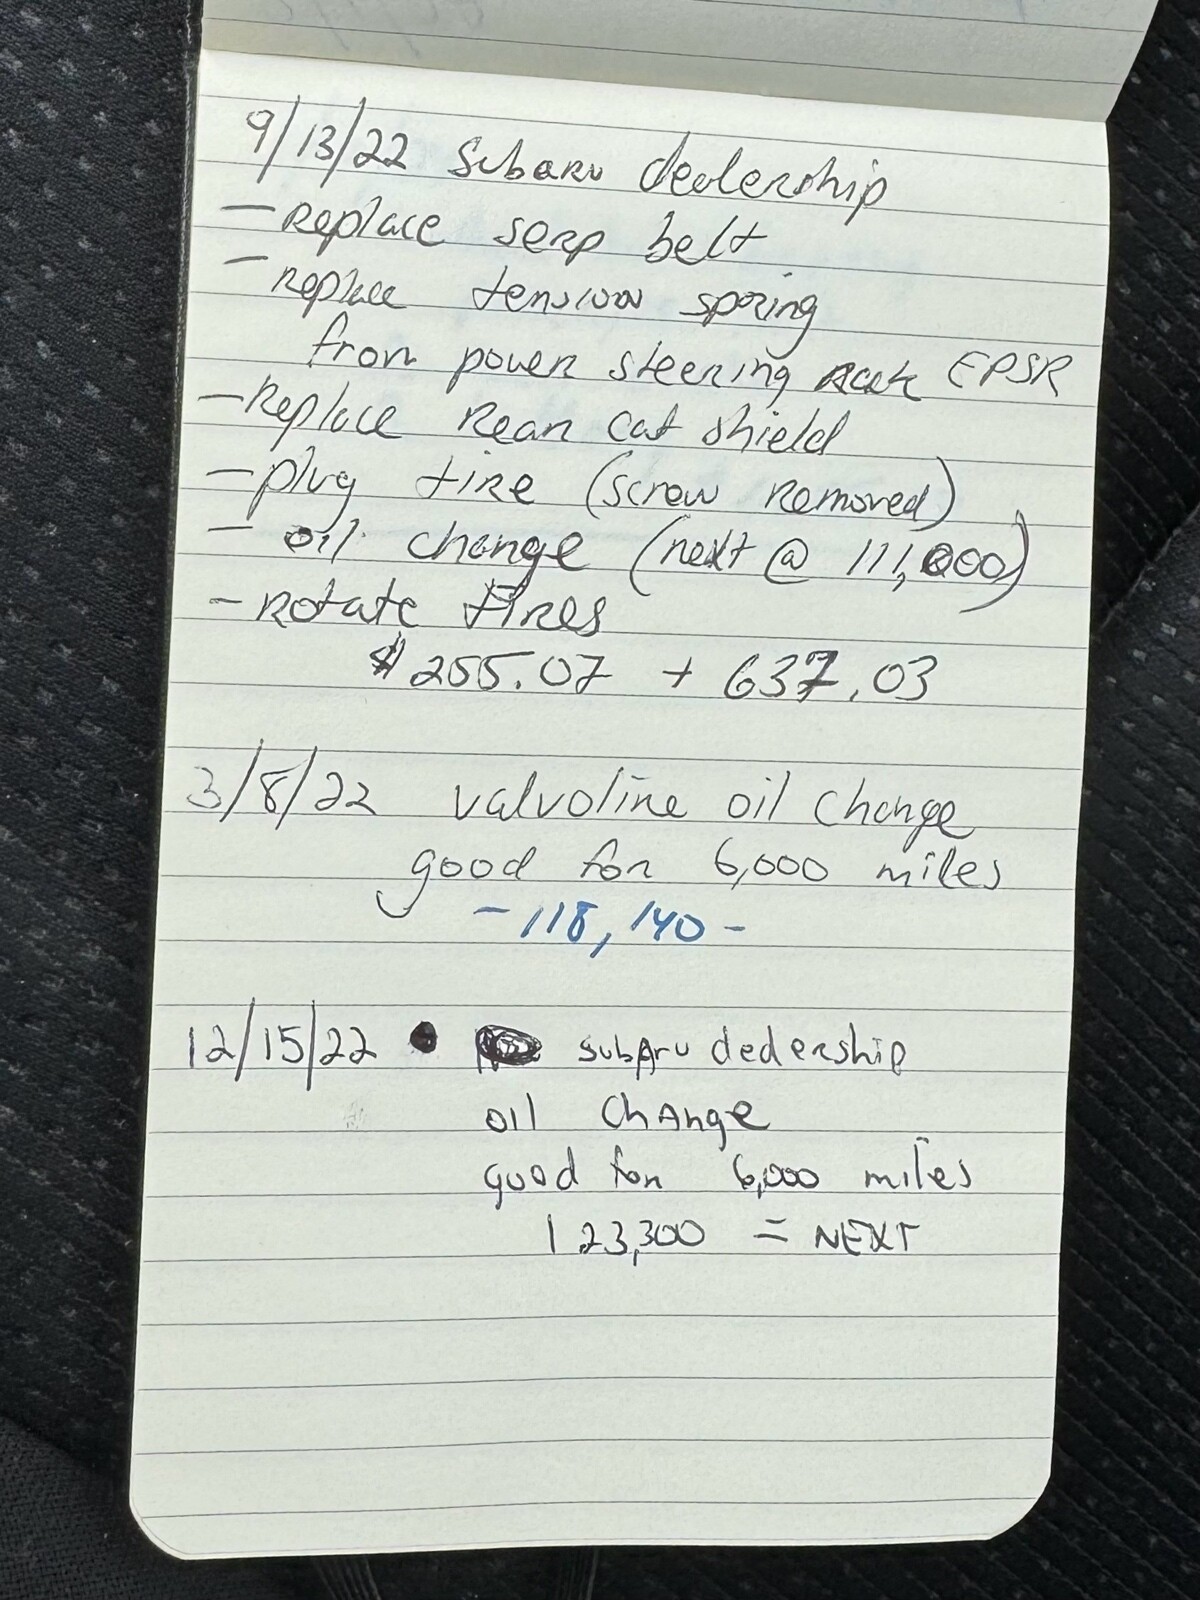 9/13/22 Subaru dealership
- Replace serp belt
- replace tension spring
from power steering rack EPSR
- Replace Rear cat shield
- plug tire (screw removed)
- oil change (next @ 111,000)
- rotate tires
$255.07 + 637.03
3/8/22 Valvoline oil change
good for 6,000 miles
- 118,140 -
12/15/22 subaru dedership
oil change
good for 6,000 miles
123,300 = NEXT